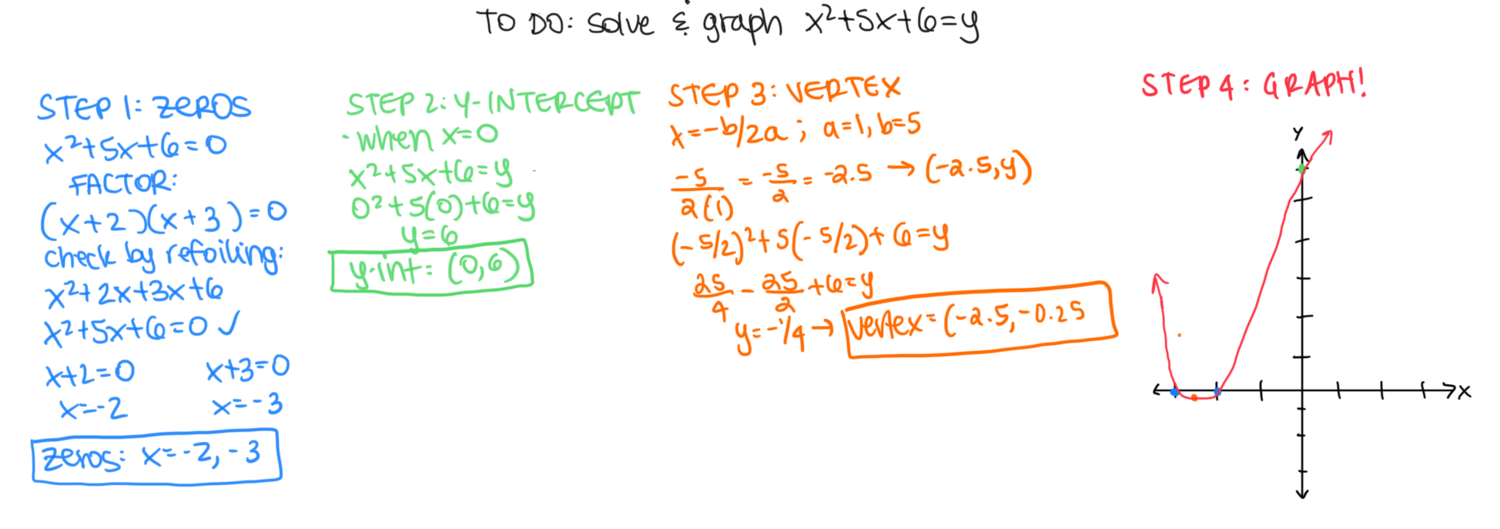 TO DO: solve & graph x²+5x+6=y
STEP 1: ZEROS
x²+5x+6=0
FACTOR:
(x+2)(x+3)=0
check by refoiling:
x²+2x+3x+6
x²+5x+6=0 ✓
x+2=0 x+3=0
x=-2 x=-3
zeros: x=-2,-3
STEP 2: Y-INTERCEPT
- when x=0
x²+5x+6=y
0²+5(0)+6=y
y=6
y-int: (0,6)
STEP 3: VERTEX
x=-b/2a ; a=1, b=5
-5/2(1) = -5/2 = -2.5 → (-2.5,y)
(-5/2)²+5(-5/2)+6=y
25/4 - 25/2 +6=y
y=-1/4 → vertex=(-2.5,-0.25
STEP 4: GRAPH!
Y
X